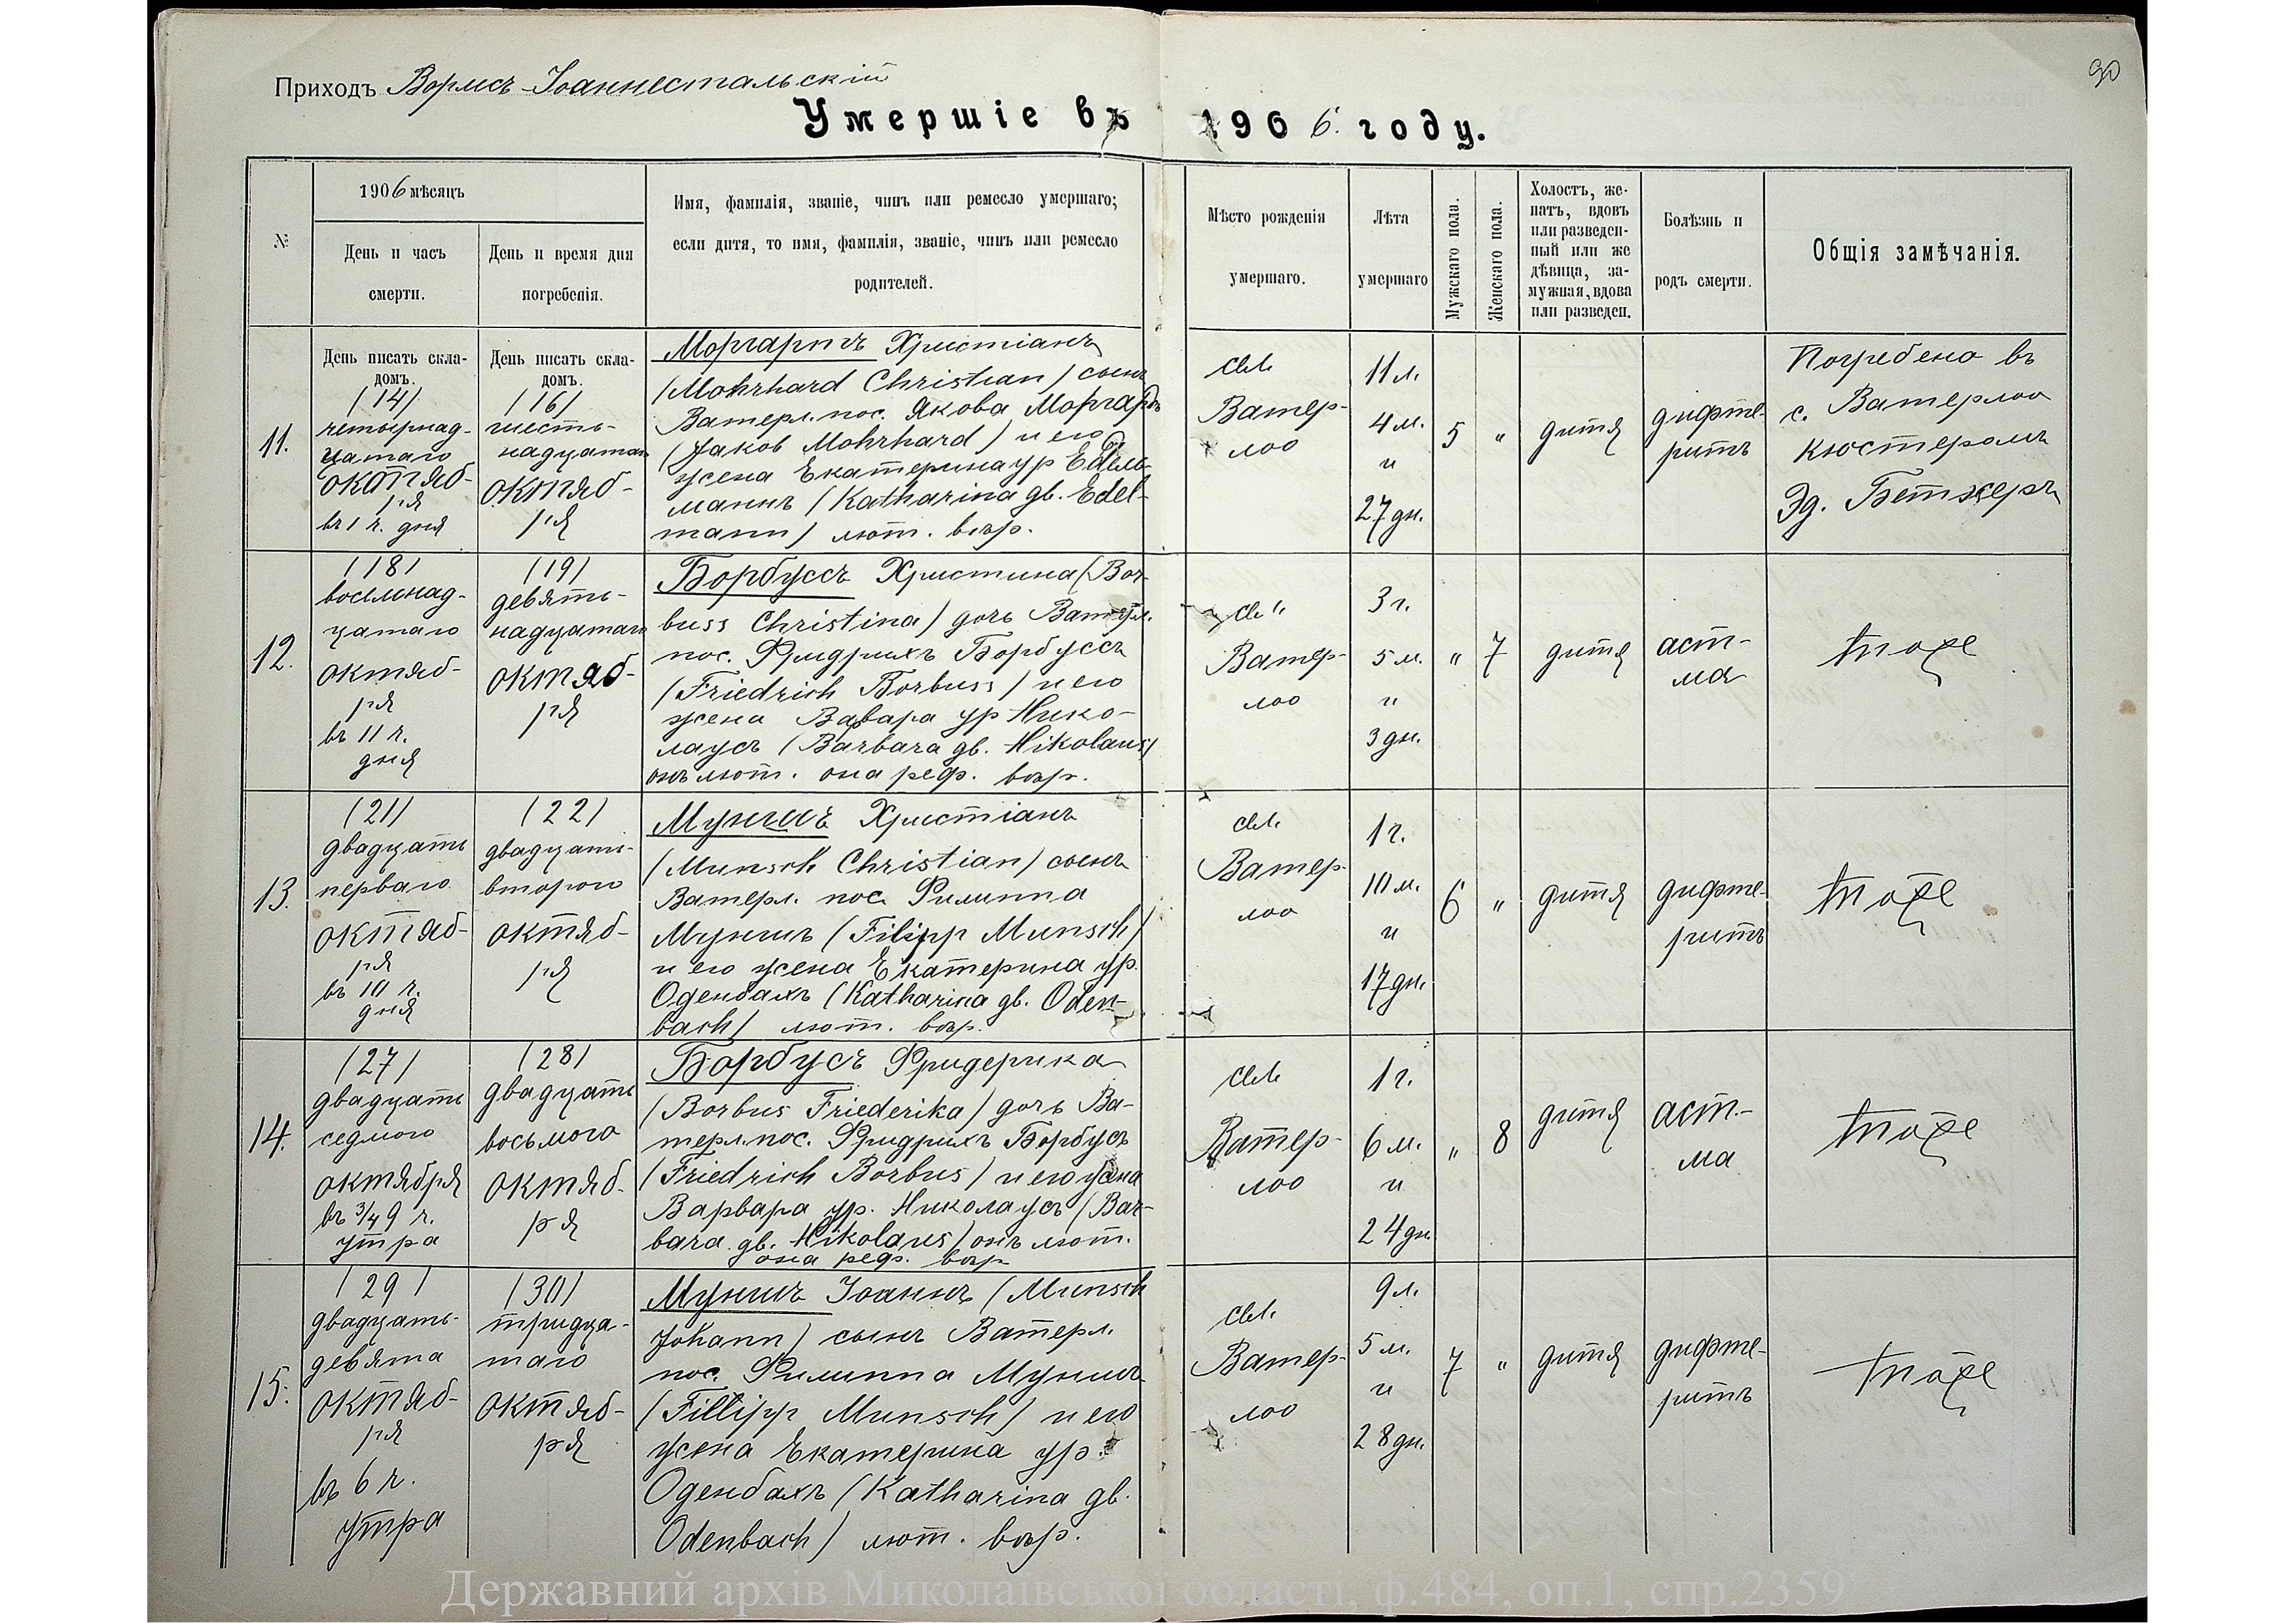 90
Приходъ Вормсъ-Іоаннестальскій
Умершіе въ 1906 году.
№
1906 мѣсяцъ
День и часъ
смерти.
День и время дня
погребенія.
Имя, фамилія, званіе, чинъ или ремесло умершаго;
если дитя, то имя, фамилія, званіе, чинъ или ремесло
родителей.
Мѣсто рожденія
умершаго.
Лѣта
умершаго
Мужскаго пола.
Женскаго пола.
Холостъ, же-
натъ, вдовъ
или разведен-
ный или же
дѣвица, за-
мужная, вдова
или разведен.
Болѣзнь и
родъ смерти.
Общія замѣчанія.
11.
День писать скла-
домъ.
(14)
четырнад-
цатаго
октяб-
ря
въ 1 ч. дня
День писать скла-
домъ.
(16)
шесть-
надцатаго
октяб-
ря
Моргартъ Христіанъ
(Mohrhard Christian) сынъ
Ватерл. пос. Якова Моргардъ
(Jakob Mohrhard) и его
жена Екатерина ур Едель-
маннъ (Katharina gb. Edel-
mann) лют. вѣр.
Ватер-
лоо
11 л.
4 м.
и
27 дн.
5
"
дитя
дифте-
ритъ
Погребено въ
с. Ватерлоо
кюстеромъ
Эд. Бетхеръ
12.
(18)
восемнад-
цатаго
октяб-
ря
въ 11 ч.
дня
(19)
девять-
надцатаго
октяб-
ря
Борбуссъ Христина (Bor-
buss Christina) дочь Ватерл.
пос. Фридрихъ Борбуссъ
(Friedrich Borbuss) и его
жена Вавара ур Нико-
лаусъ (Barbara gb. Nikolaus)
онъ лют. она реф. вѣр.
Ватер-
лоо
3 г.
5 м.
и
3 дн.
"
7
дитя
аст-
ма
тоже
13.
(21)
двадцать
перваго
октяб-
ря
въ 10 ч.
дня
(22)
двадцать-
второго
октяб-
ря
Муншъ Христіанъ
(Munsch Christian) сынъ
Ватерл. пос. Филиппа
Муншъ (Filipp Munsch)
и его жена Екатерина ур.
Оденбахъ (Katharina gb. Oden-
bach) лют. вѣр.
Ватер-
лоо
1 г.
10 м.
и
17 дн.
6
"
дитя
дифте-
ритъ
тоже
14.
(27)
двадцать
седмого
октября
въ 3/4 9 ч.
утра
(28)
двадцать
восьмого
октяб-
ря
Борбусъ Фридерика
(Borbus Friederika) дочь Ва-
терл. пос. Фридрихъ Борбусъ
(Friedrich Borbus) и его жена
Варвара ур. Николаусъ (Bar-
bara gb. Nikolaus) онъ лют.
она реф. вѣр
Ватер-
лоо
1 г.
6 м.
и
24 дн.
"
8
дитя
аст-
ма
тоже
15.
(29)
двадцать-
девята
октяб-
ря
въ 6 ч.
утра
(30)
тридца-
таго
октяб-
ря
Муншъ Іоаннъ (Munsch
Johann) сынъ Ватерл.
пос. Филиппа Муншъ
(Fillipp Munsch) и его
жена Екатерина ур.
Оденбахъ (Katharina gb.
Odenbach) лют. вѣр.
Ватер-
лоо
9 л.
5 м.
и
28 дн.
7
"
дитя
дифте-
ритъ
тоже
Державний архів Миколаївської області, ф.484, оп.1, спр.2359